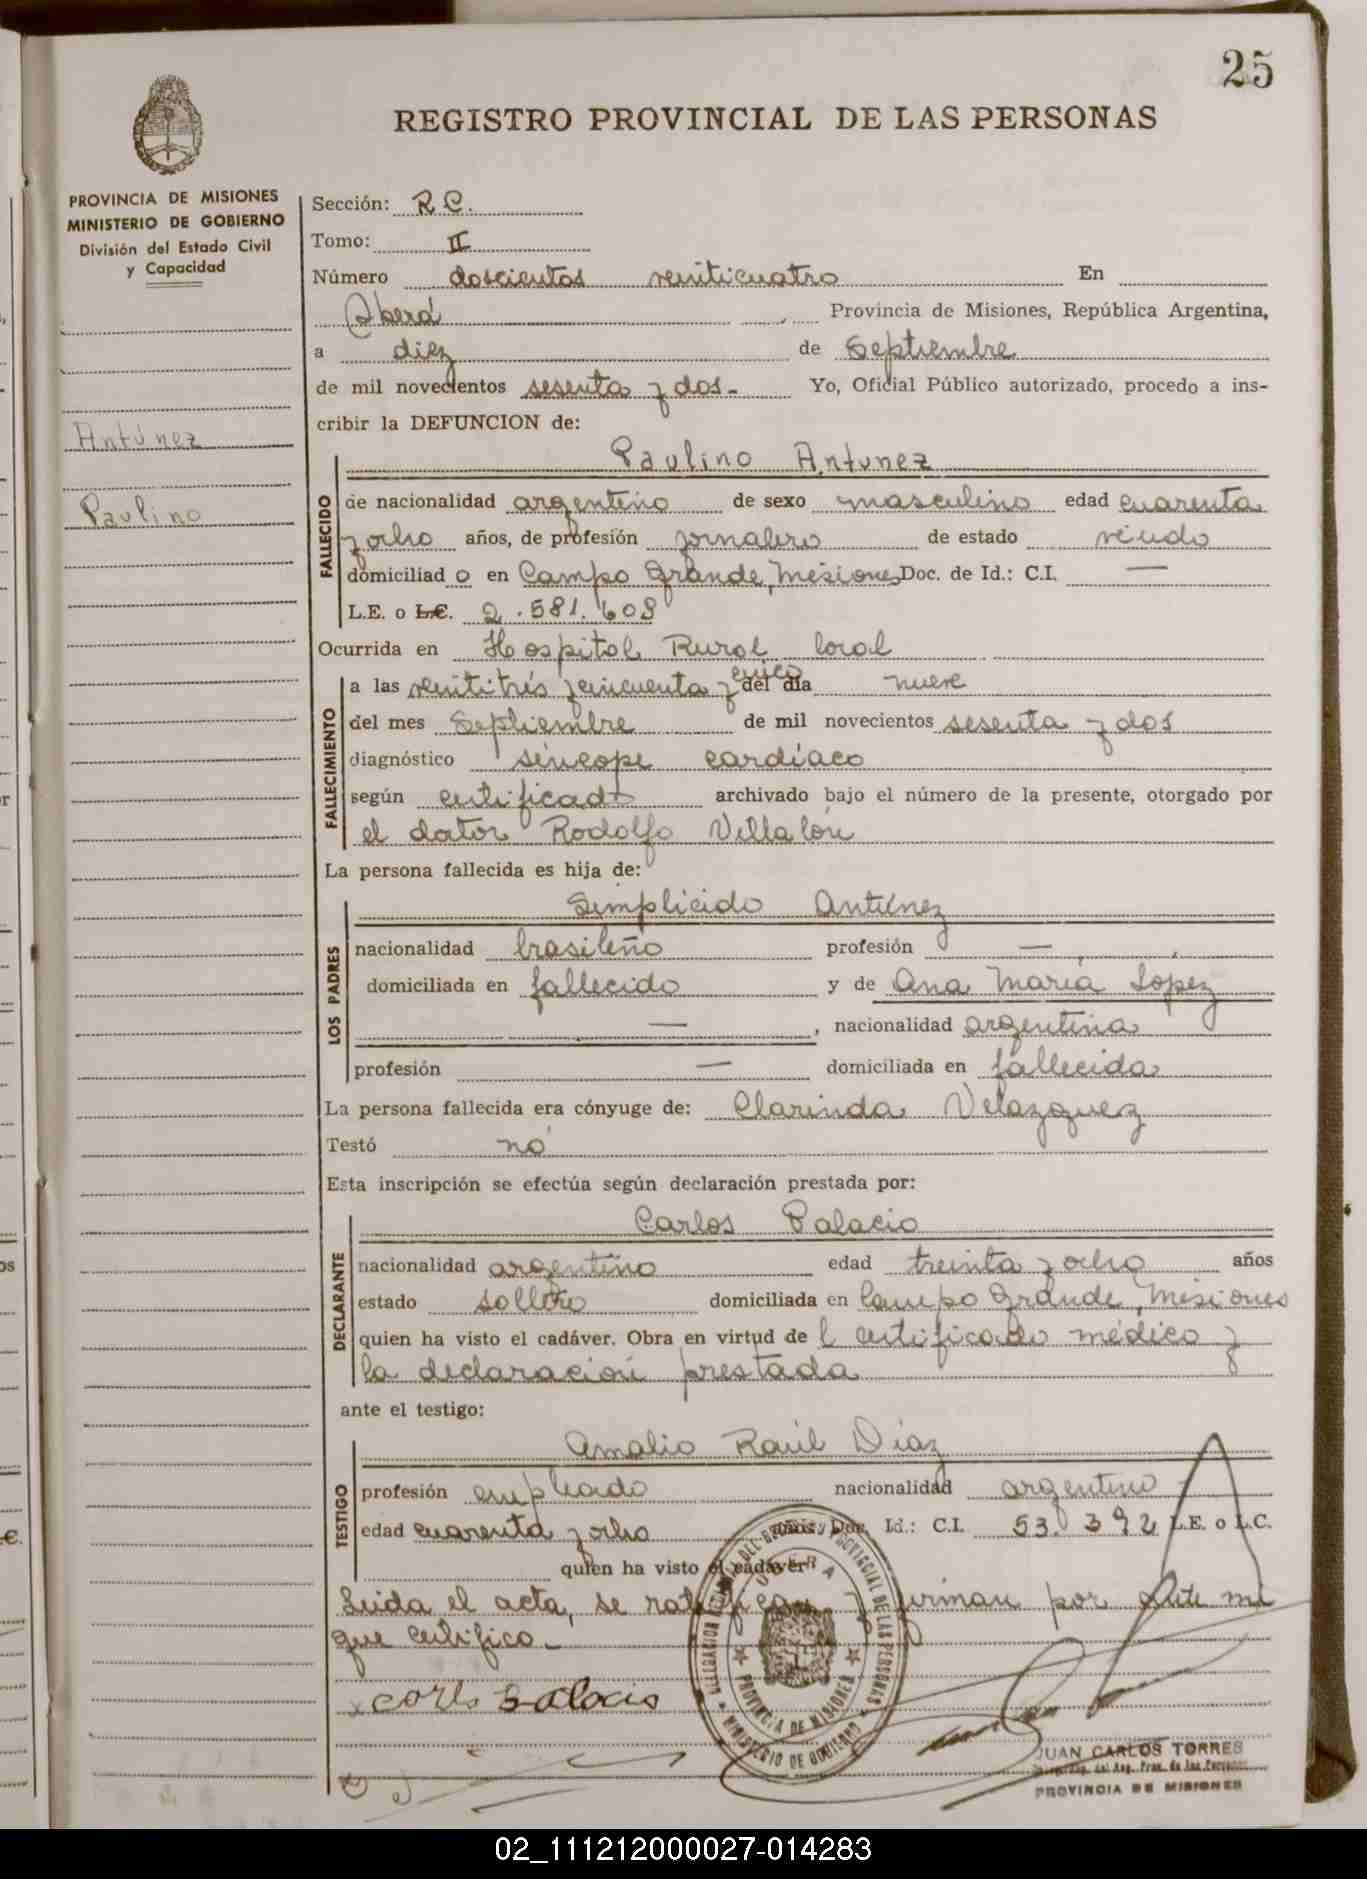 25
REGISTRO PROVINCIAL DE LAS PERSONAS
PROVINCIA DE MISIONES
MINISTERIO DE GOBIERNO
División del Estado Civil
y Capacidad
Antúnez
Paulino
Sección: R C.
Tomo: II
Número doscientos veinticuatro En
Oberá , Provincia de Misiones, República Argentina,
a diez de Septiembre
de mil novecientos sesenta y dos - Yo, Oficial Público autorizado, procedo a ins-
cribir la DEFUNCION de:
Paulino Antunez
FALLECIDO
de nacionalidad argentino de sexo masculino edad cuarenta
y ocho años, de profesión jornalero de estado viudo
domiciliado en Campo Grande, Misiones Doc. de Id.: C.I. —
L.E. o L.C. 2.581.608
Ocurrida en Hospital Rural local
FALLECIMIENTO
a las veintitrés y cincuenta y cinco del día nueve
del mes Septiembre de mil novecientos sesenta y dos
diagnóstico síncope cardíaco
según certificado archivado bajo el número de la presente, otorgado por
el doctor Rodolfo Villalón
La persona fallecida es hija de:
LOS PADRES
Simplicido Antúnez
nacionalidad brasileño profesión — ,
domiciliada en fallecido y de Ana María Lopez
— , nacionalidad argentina
profesión — domiciliada en fallecida
La persona fallecida era cónyuge de: Clarinda Velazquez
Testó no
Esta inscripción se efectúa según declaración prestada por:
DECLARANTE
Carlos Palacio
nacionalidad argentino edad treinta y ocho años
estado soltero domiciliada en Campo Grande, Misiones
quien ha visto el cadáver. Obra en virtud de l certificado médico y
la declaración prestada
ante el testigo:
TESTIGO
Amalio Raúl Díaz
profesión empleado nacionalidad argentino
edad cuarenta y ocho años. Doc. Id.: C.I. 53.392 L.E. o L.C.
quien ha visto el cadáver
Leida el acta, se ratifican y firman por ante mi
que certifico -
x Carlos Palacio
DELEGACION DEL REGISTRO PROVINCIAL DE LAS PERSONAS
OBERA
PROVINCIA DE MISIONES
MINISTERIO DE GOBIERNO
JUAN CARLOS TORRES
PROVINCIA DE MISIONES
02_111212000027-014283